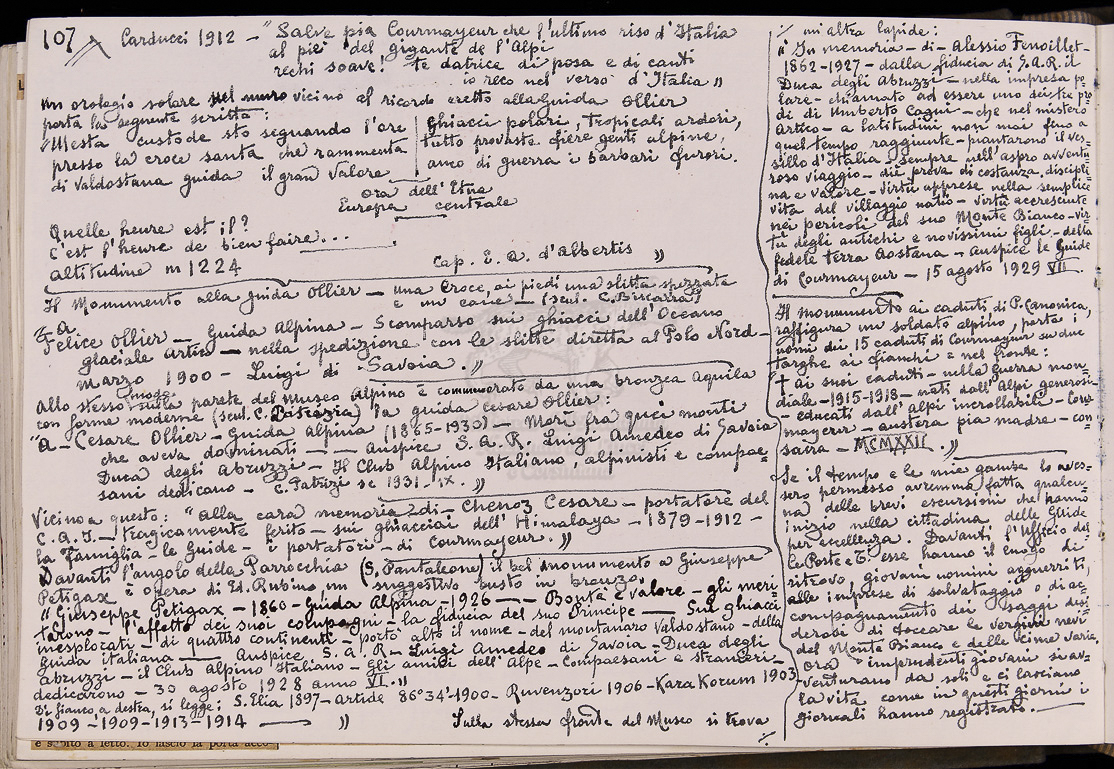 107
Carducci 1912 - "Salve pia Courmayeur che l'ultimo riso d'Italia
al piè del gigante de l'Alpi
rechi soave! te datrice di posa e di canti
io reco nel verso d'Italia"
un orologio solare nel muro vicino al ricordo eretto alla Guida Ollier
porta la seguente scritta:
"Mesta custode sto segnando l'ore
presso la croce santa che rammenta
di Valdostana guida il gran valore
ghiacci polari, tropicali ardori,
tutto provaste fiere genti alpine,
anco di guerra i barbari furori.
ora dell'Etna
Europa centrale
Quelle heure est il?
C'est l'heure de bien faire...
altitudine m 1224
Cap. E. A. d'Albertis "
Il Monumento alla guida Ollier - una Croce, ai piedi una slitta spezzata
e un cane - (scul. C. Biscarra)
"a
Felice Ollier - Guida Alpina - Scomparso sui ghiacci dell'Oceano
glaciale Artico - nella spedizione con le slitte diretta al Polo Nord -
marzo 1900 - Luigi di Savoia."
Allo stesso modo sulla parete del museo Alpino è commemorato da una bronzea aquila
con forme moderne (scul. C. Patrizia) la guida Cesare Ollier:
"A - Cesare Ollier - Guida Alpina (1865-1930) - Morì fra quei monti
che aveva dominati - Auspice S.A.R. Luigi Amedeo di Savoia
Duca degli Abruzzi - Il Club Alpino Italiano, alpinisti e compae=
sani dedicano - C. Patrizi sc 1931. IX."
Vicino a questo: "alla cara memoria - di - Chenoz Cesare - portatore del
C.A.I. - tragicamente ferito - sui ghiacciai dell'Himalaya - 1879-1912 -
la famiglia - le Guide - i portatori - di Courmayeur."
Davanti l'angolo della Parrocchia (S. Pantaleone) il bel monumento a Giuseppe
Petigax è opera di Ed. Rubino un suggestivo busto in bronzo.
"Giuseppe Petigax - 1860 - Guida Alpina - 1926 - Bontà e valore - gli meri=
tarono - l'affetto dei suoi compagni - la fiducia del suo Principe - Sui ghiacci
inesplorati - di quattro continenti - portò alto il nome - del montanaro valdostano - della
guida italiana - Auspice S.A.R. Luigi Amedeo di Savoia - Duca degli
Abruzzi - il Club Alpino Italiano - gli amici dell'Alpe - Compaesani e stranieri -
dedicarono - 30 agosto 1928 anno VI."
Di fianco, a destra, si legge: S. Elia 1897 - Artide 86°34'-1900 - Ruvenzori 1906 - Kara Korum 1903
1909-1909-1913-1914 "
Sulla stessa fronte del Museo si trova
un altra lapide:
"In memoria - di - Alessio Fenoillet -
1862-1927 - dalla fiducia di S.A.R. il
Duca degli Abruzzi - nella impresa po=
lare - chiamato ad essere uno dei tre pro=
di di Umberto Cagni - che nel mistero
Artico - a latitudini non mai fino a
quel tempo raggiunte - piantarono il ves=
sillo d'Italia - sempre nell'aspro avventu=
roso viaggio - diè prova di costanza, discipli=
na e valore - virtù apprese nella semplice
vita del villaggio natio - virtù accresciute
nei pericoli del suo Monte Bianco - vir=
tù degli antichi e novissimi figli - della
fedele terra Aostana - auspice le Guide
di Courmayeur - 15 agosto 1929 VII.
Il monumento ai caduti, di P. Canonica,
raffigura un soldato alpino, porta i
nomi dei 15 caduti di Courmayeur su due
targhe ai fianchi e nel fronte:
"Ai suoi caduti - nella guerra mon=
diale - 1915-1918 - nati dall'Alpi generosi
educati dall'Alpi incrollabili - Cour
mayeur - austera pia madre - con=
sacra - MCMXXII."
Se il tempo e le mie gambe lo aves=
sero permesso avremmo fatta qualcu=
na delle brevi escursioni che hanno
inizio nella cittadina delle Guide
per eccellenza. Davanti l'Ufficio del=
le Poste e T. esse hanno il luogo di
ritrovo, giovani uomini agguerriti,
alle imprese di salvataggio o di ac=
compagnamento dei saggi desi=
derosi di toccare le vergini nevi
del Monte Bianco e delle cime varie,
ora imprudenti giovani si av=
venturano da soli e ci lasciano
la vita come in questi giorni i
giornali hanno registrato.
e subito a letto. Io lascio la porta acco-